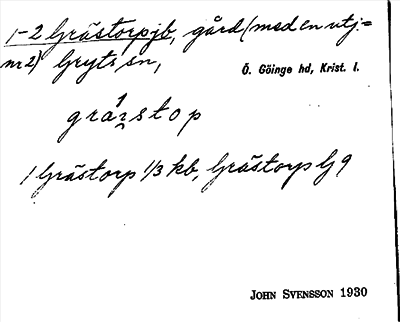 1-2 Grästorpjb, gård (med en utj.=
nr 2) Gryts sn,
Ö. Göinge hd, Krist. l.
gra²stop
1 Grästorp 1/3 kb, Grästorp Lj 9
JOHN SVENSSON 1930